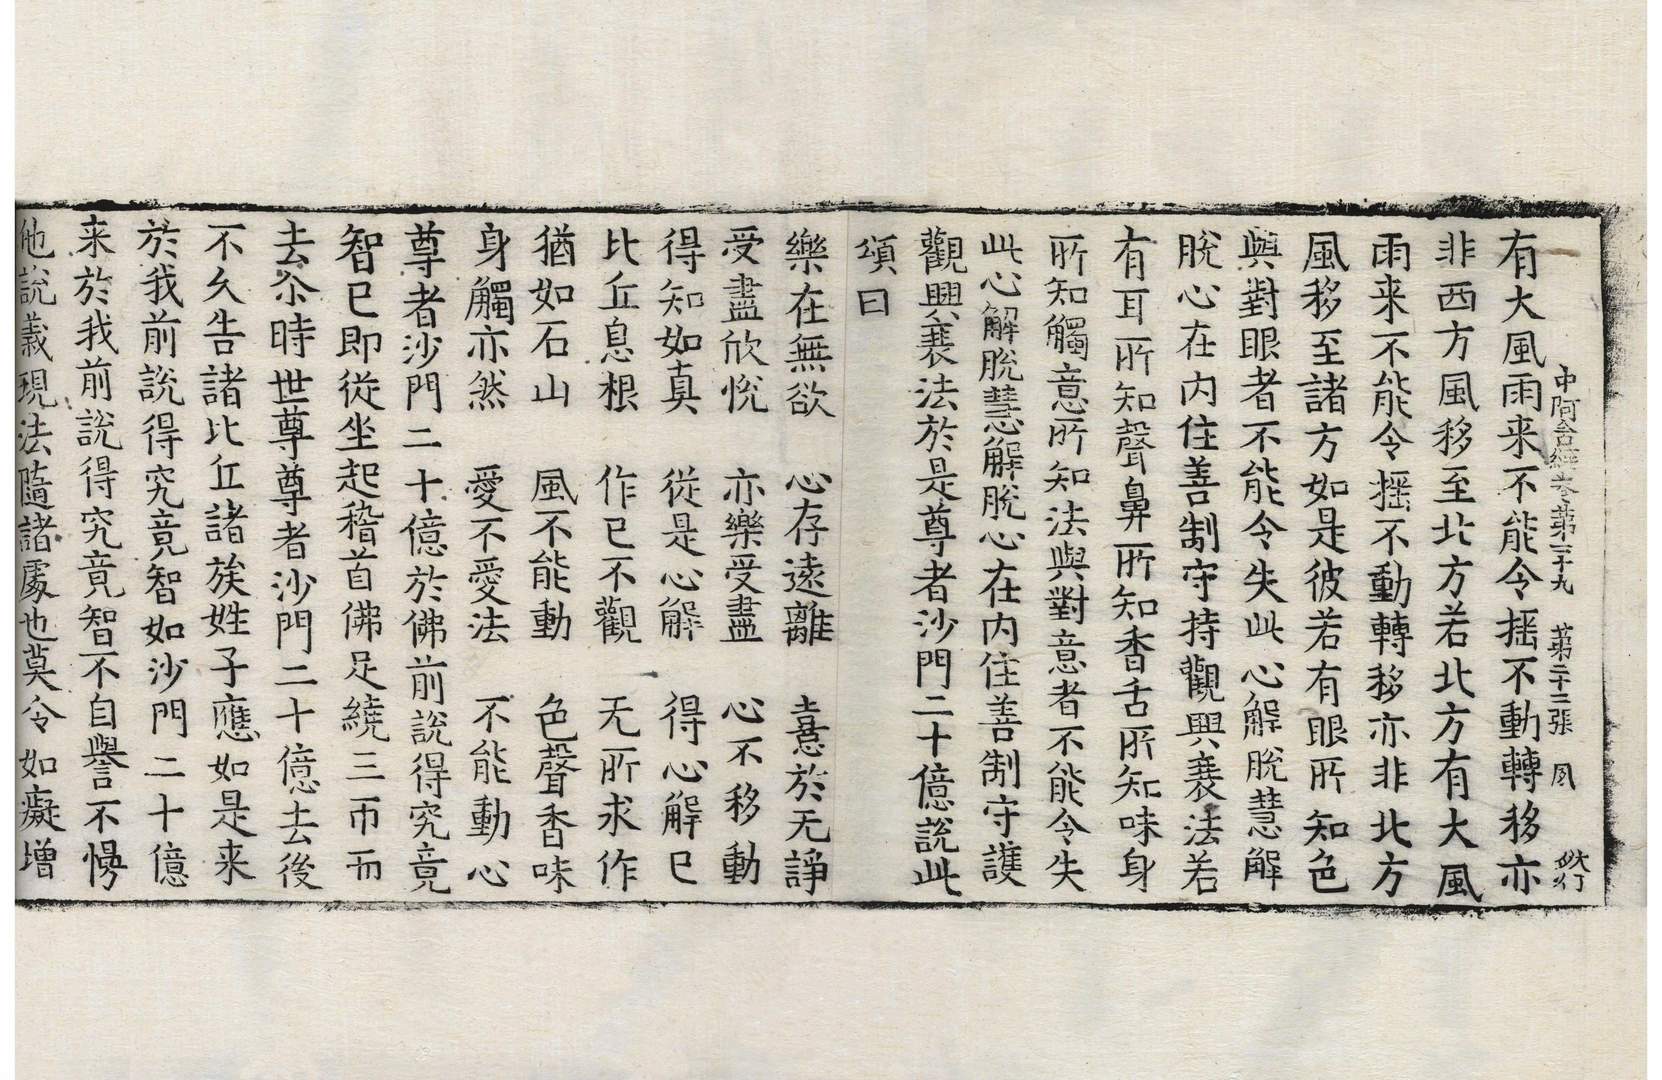 中阿含經卷第二十九 第二十三張 夙
有大風雨来不能令揺不動轉移亦
非西方風移至北方若北方有大風
雨来不能令揺不動轉移亦非北方
風移至諸方如是彼若有眼所知色
與對眼者不能令失此心解脫慧解
脫心在内住善制守持觀興衰法若
有耳所知聲鼻所知香舌所知味身
所知觸意所知法與對意者不能令失
此心解脫慧解脫心在内住善制守護
觀興衰法於是尊者沙門二十億說此
頌曰
樂在無欲 心存遠離 憙於无諍
受盡欣悅 亦樂受盡 心不移動
得知如真 從是心解 得心解已
比丘息根 作已不觀 无所求作
猶如石山 風不能動 色聲香味
身觸亦然 愛不愛法 不能動心
尊者沙門二十億於佛前說得究竟
智已即從坐起稽首佛足繞三帀而
去尒時世尊尊者沙門二十億去後
不久告諸比丘諸族姓子應如是来
於我前說得究竟智如沙門二十億
来於我前說得究竟智不自譽不慢
他說義現法隨諸處也莫令如癡增